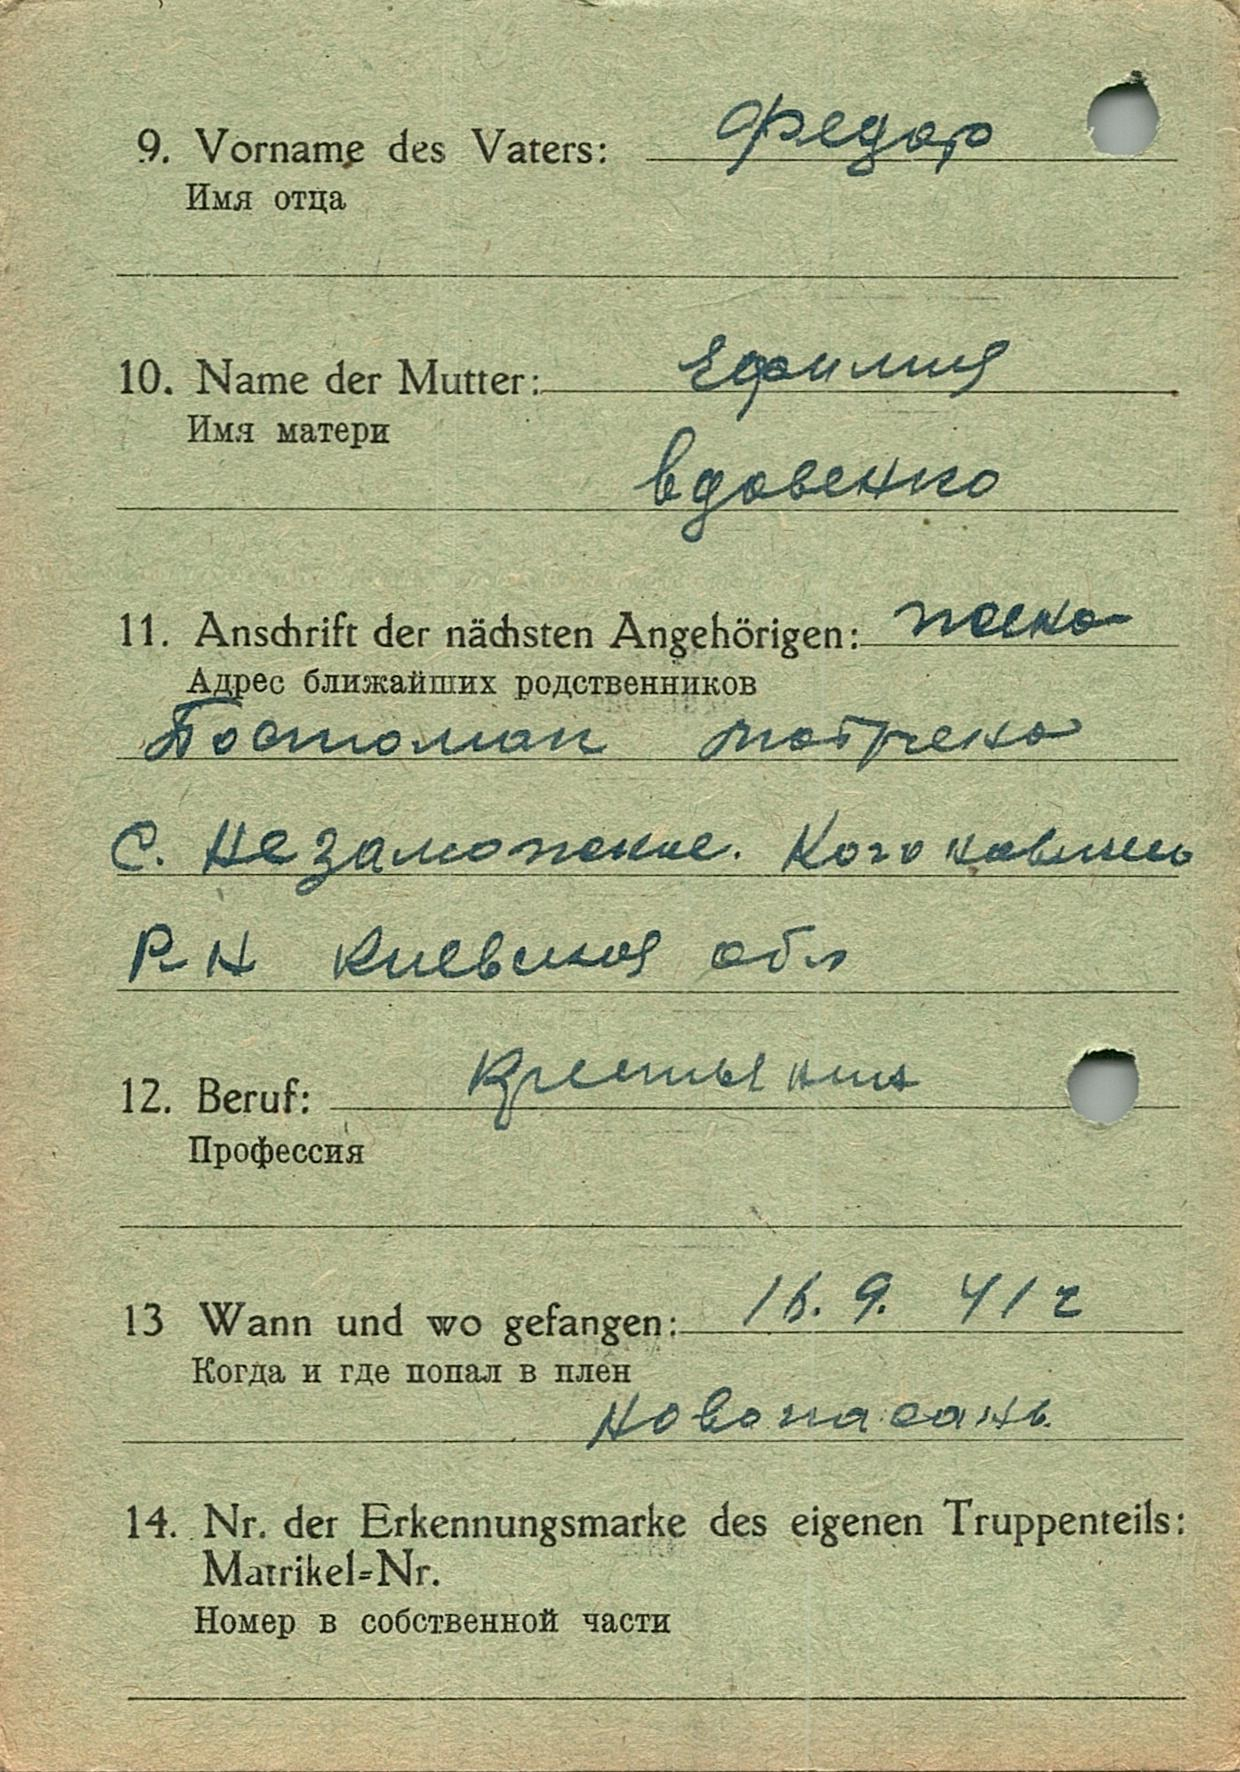 9. Vorname des Vaters: Федор
Имя отца
10. Name der Mutter: Ефимия
Имя матери
Вдовенко
11. Anschrift der nächsten Angehörigen:
Адрес ближайших родственников
С. Незаможние.
Р-Н Киевская обл
12. Beruf: Крестьянин
Профессия
13 Wann und wo gefangen: 16. 9. 41 г
Когда и где попал в плен
Новопасань
14. Nr. der Erkennungsmarke des eigenen Truppenteils:
Matrikel-Nr.
Номер в собственной части